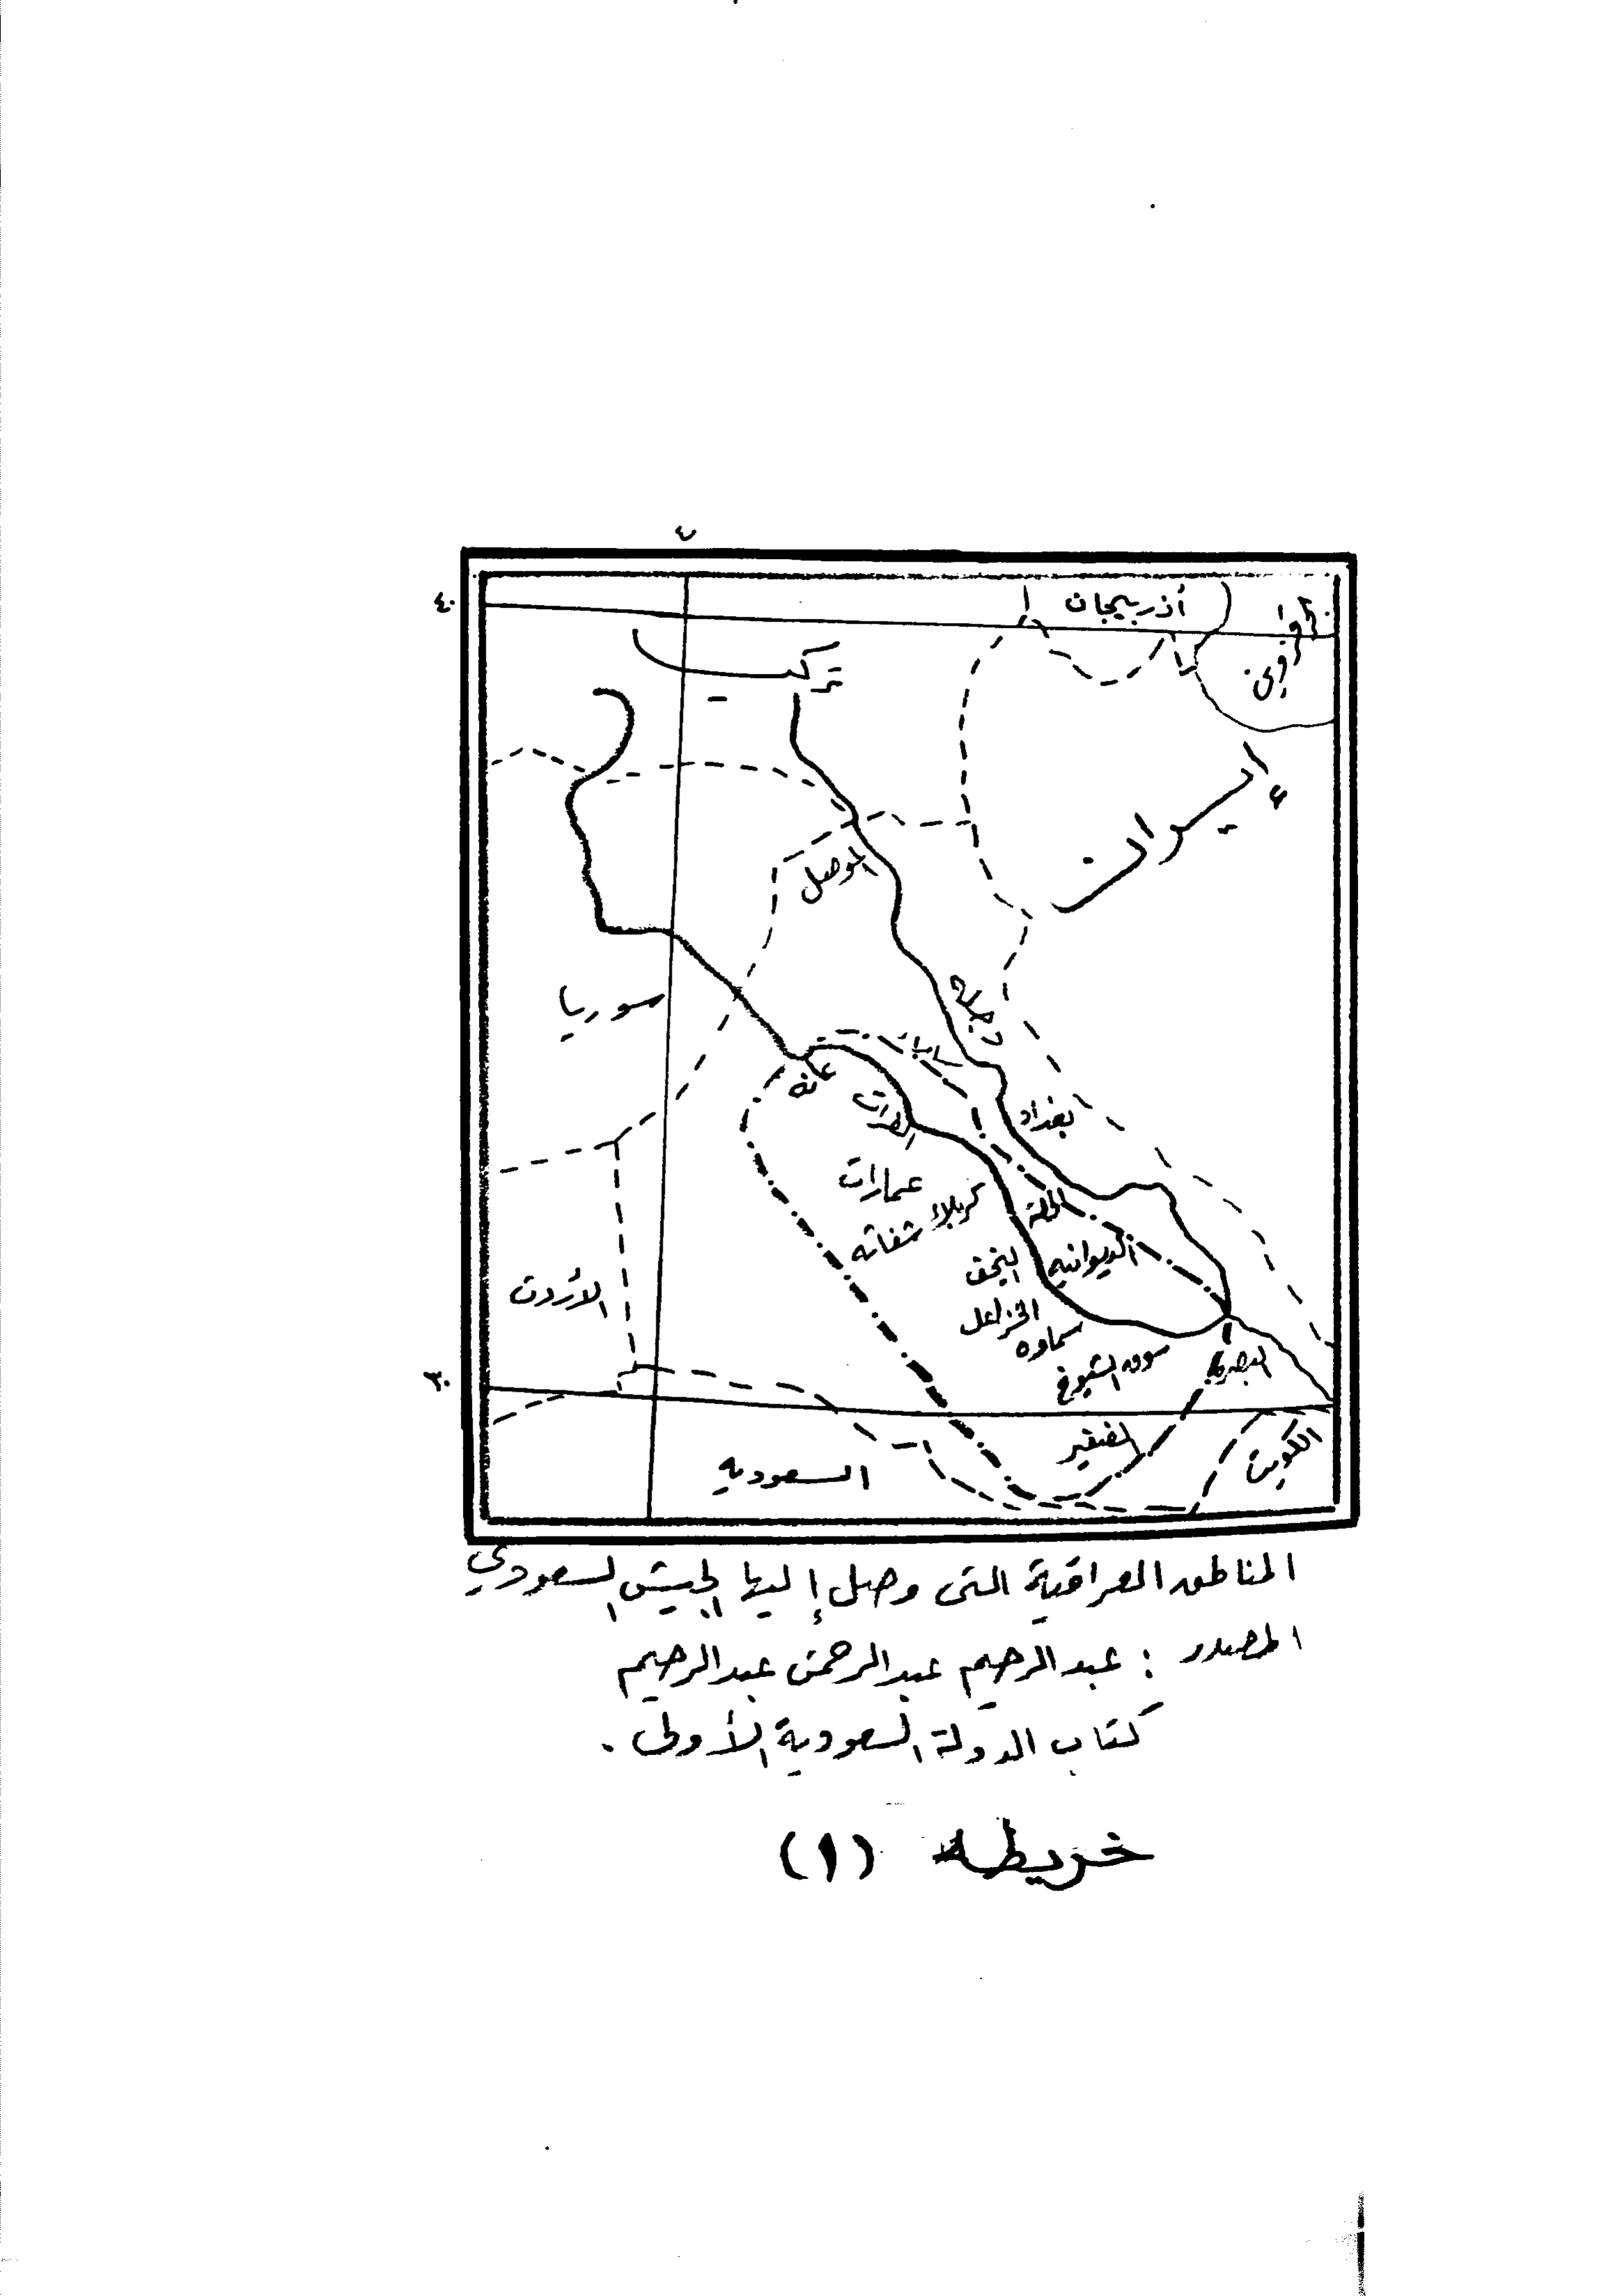 ٤٠
أذربيجان
تركيا
إيران
الموصل
سوريا
دجلة
عانه
الفرات
بغداد
عمارات
كربلاء
شفاثه
الحلة
الديوانيه
النجف
الخزاعل
سماوه
سوق الشيوخ
البصرة
الأردن
٣٠
السعوديه
الكويت
المناطق العراقية التى وصل إليها الجيش السعودي
المصدر : عبد الرحيم عبد الرحمن عبد الرحيم
كتاب الدولة السعودية الأولى .
خريطة (١)